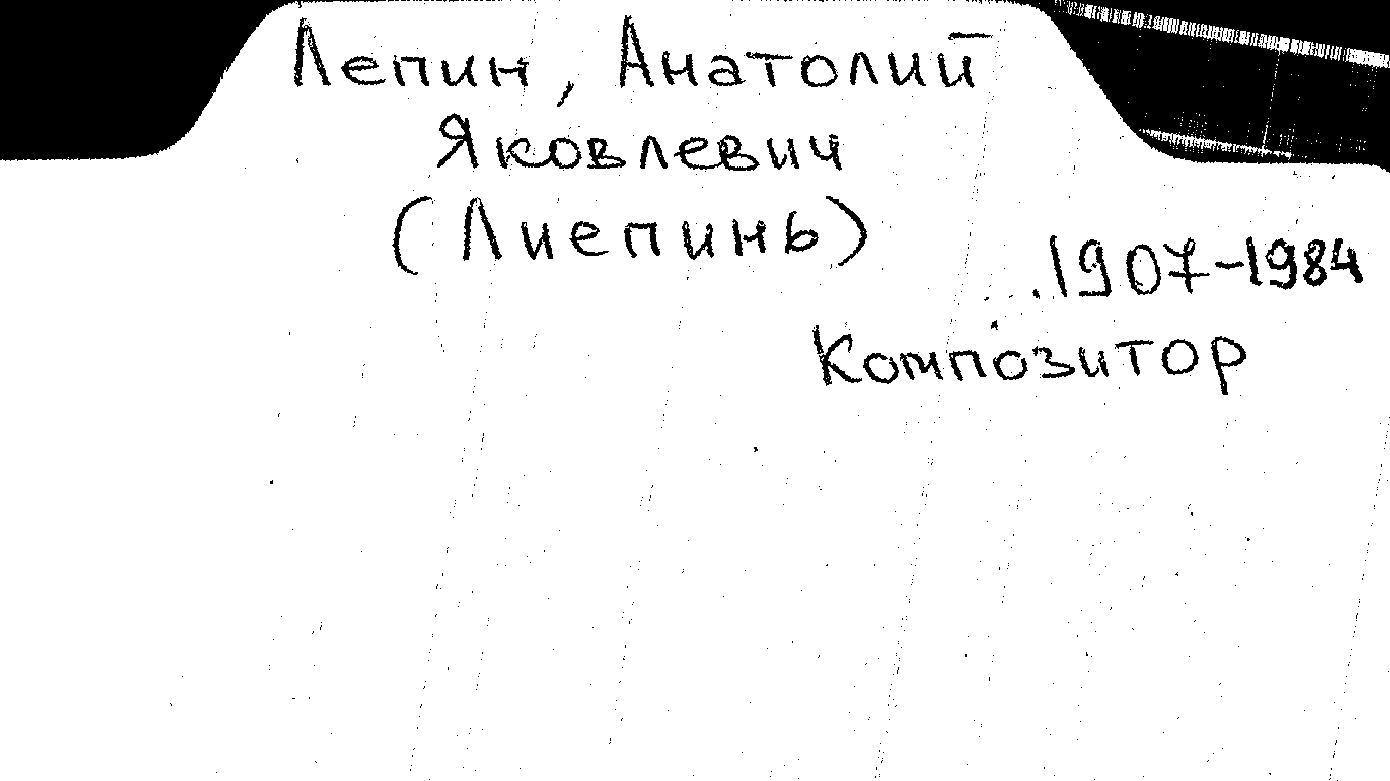 Лепин, Анатолий
Яковлевич
(Лиепинь)
1907-1984
Композитор